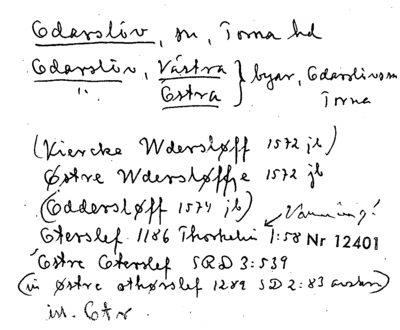 Odarslöv, sn, Torna hd
Odarslöv, Västra } byar, Odarslövs sn
" Östra Torna
(Kiercke Wdersløff 1572 jb)
Østre Wdersløffje 1572 jb
(Oddersløff 1574 jb)
Varning!
Oterslef 1186 Thorkelin 1:58 Nr 12401
Østre Oterslef SRD 3:539
(in østre othørslef 1289 SD 2:83 avskr)